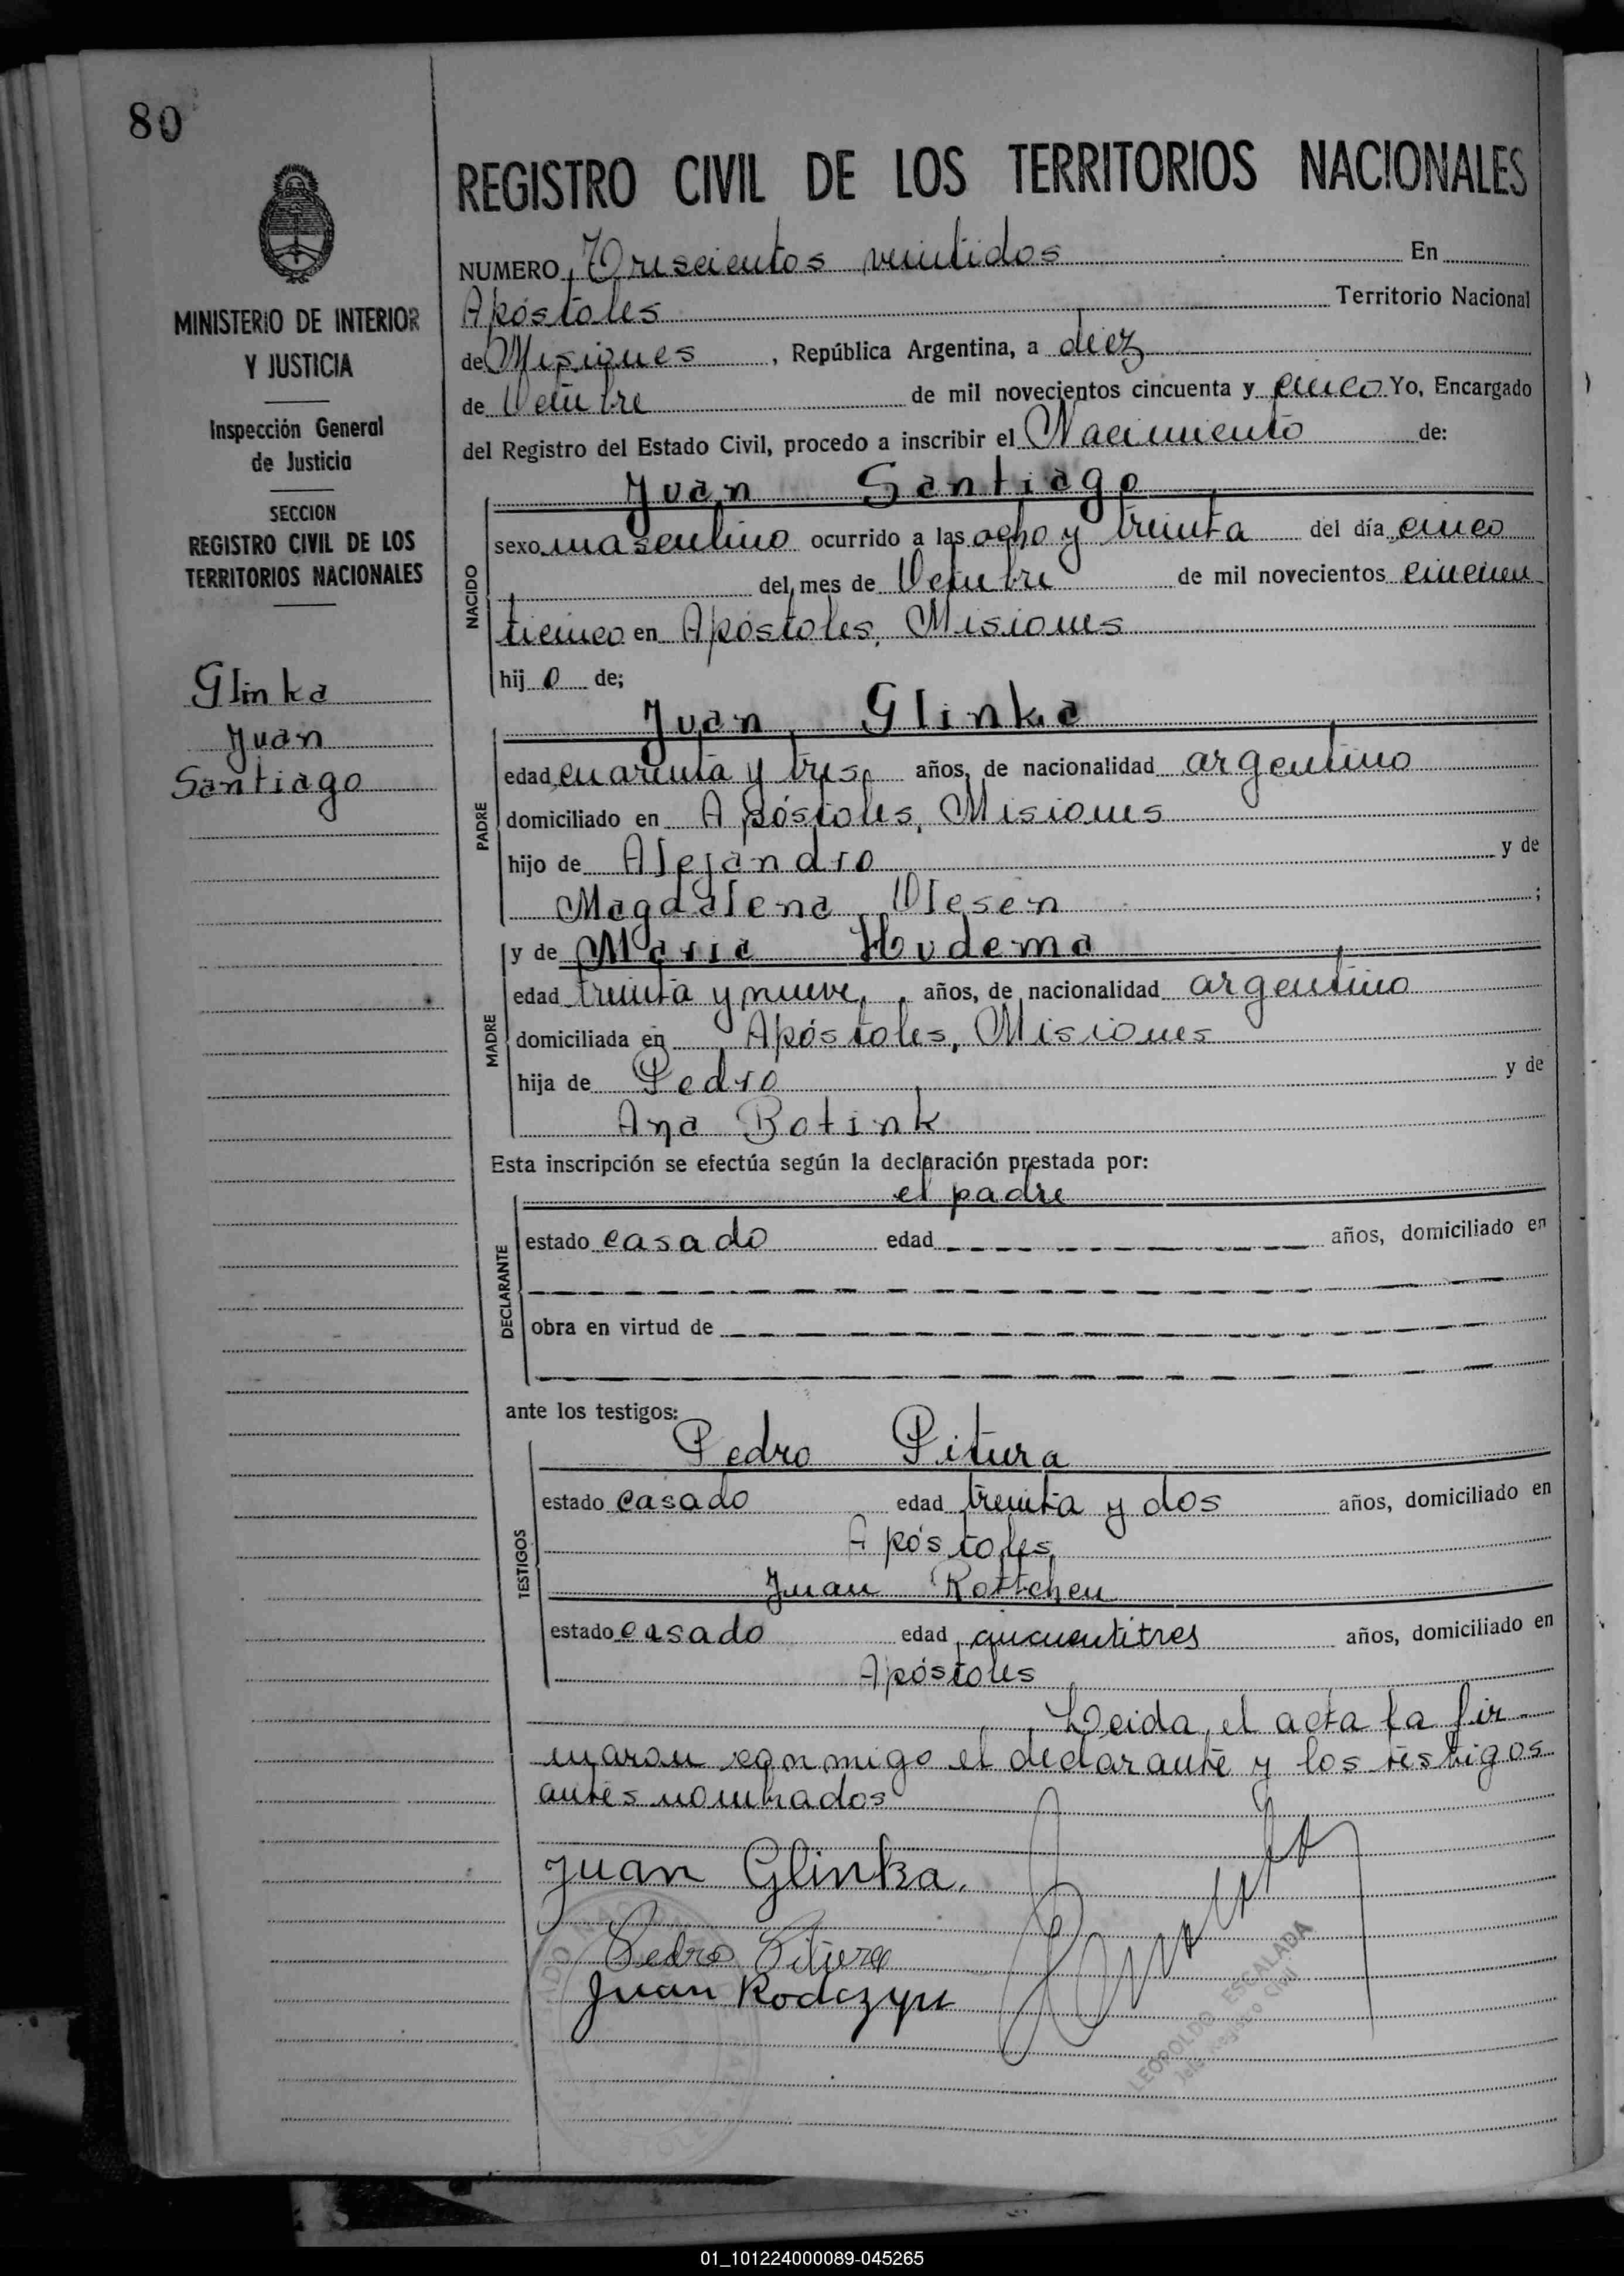 80
REGISTRO CIVIL DE LOS TERRITORIOS NACIONALES
MINISTERIO DE INTERIOR
Y JUSTICIA
Inspección General
de Justicia
SECCION
REGISTRO CIVIL DE LOS
TERRITORIOS NACIONALES
Glinka
Juan
Santiago
NUMERO Trescientos veintidos En
Apóstoles Territorio Nacional
de Misiones, República Argentina, a diez
de Octubre de mil novecientos cincuenta y cinco Yo, Encargado
del Registro del Estado Civil, procedo a inscribir el Nacimiento de:
NACIDO
Juan Santiago
sexo masculino ocurrido a las ocho y treinta del día cinco
del mes de Octubre de mil novecientos cincuen
ticinco en Apóstoles, Misiones
hij o de;
PADRE
Juan Glinka
edad cuarenta y tres años, de nacionalidad argentino
domiciliado en Apóstoles, Misiones
hijo de Alejandro y de
Magdalena Olesen ;
MADRE
y de Maria Hudema
edad treinta y nueve, años, de nacionalidad argentino
domiciliada en Apóstoles, Misiones
hija de Pedro y de
Ana Botink
Esta inscripción se efectúa según la declaración prestada por:
DECLARANTE
el padre
estado casado edad años, domiciliado en
obra en virtud de
ante los testigos:
TESTIGOS
Pedro Pitura
estado casado edad treinta y dos años, domiciliado en
Apóstoles
Juan Rottchen
estado casado edad cincuentitres años, domiciliado en
Apóstoles
Leida, el acta la fir
maron conmigo el declarante y los testigos
antes nombrados
Juan Glinka.
Pedro Pitura
Juan Rodczyn
LEOPOLDO ESCALADA
Jefe Registro Civil
01_101224000089-045265